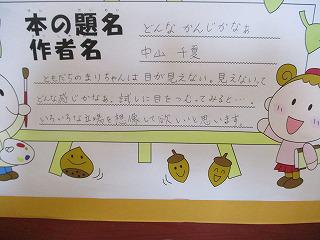 本の題名 どんな かんじかなぁ
作者名 中山 千夏
ともだちのまりちゃんは目が見えない。見えないって
どんな感じかなぁ、試しに目をつむってみると…。
いろいろな立場を想像して欲しいと思います。